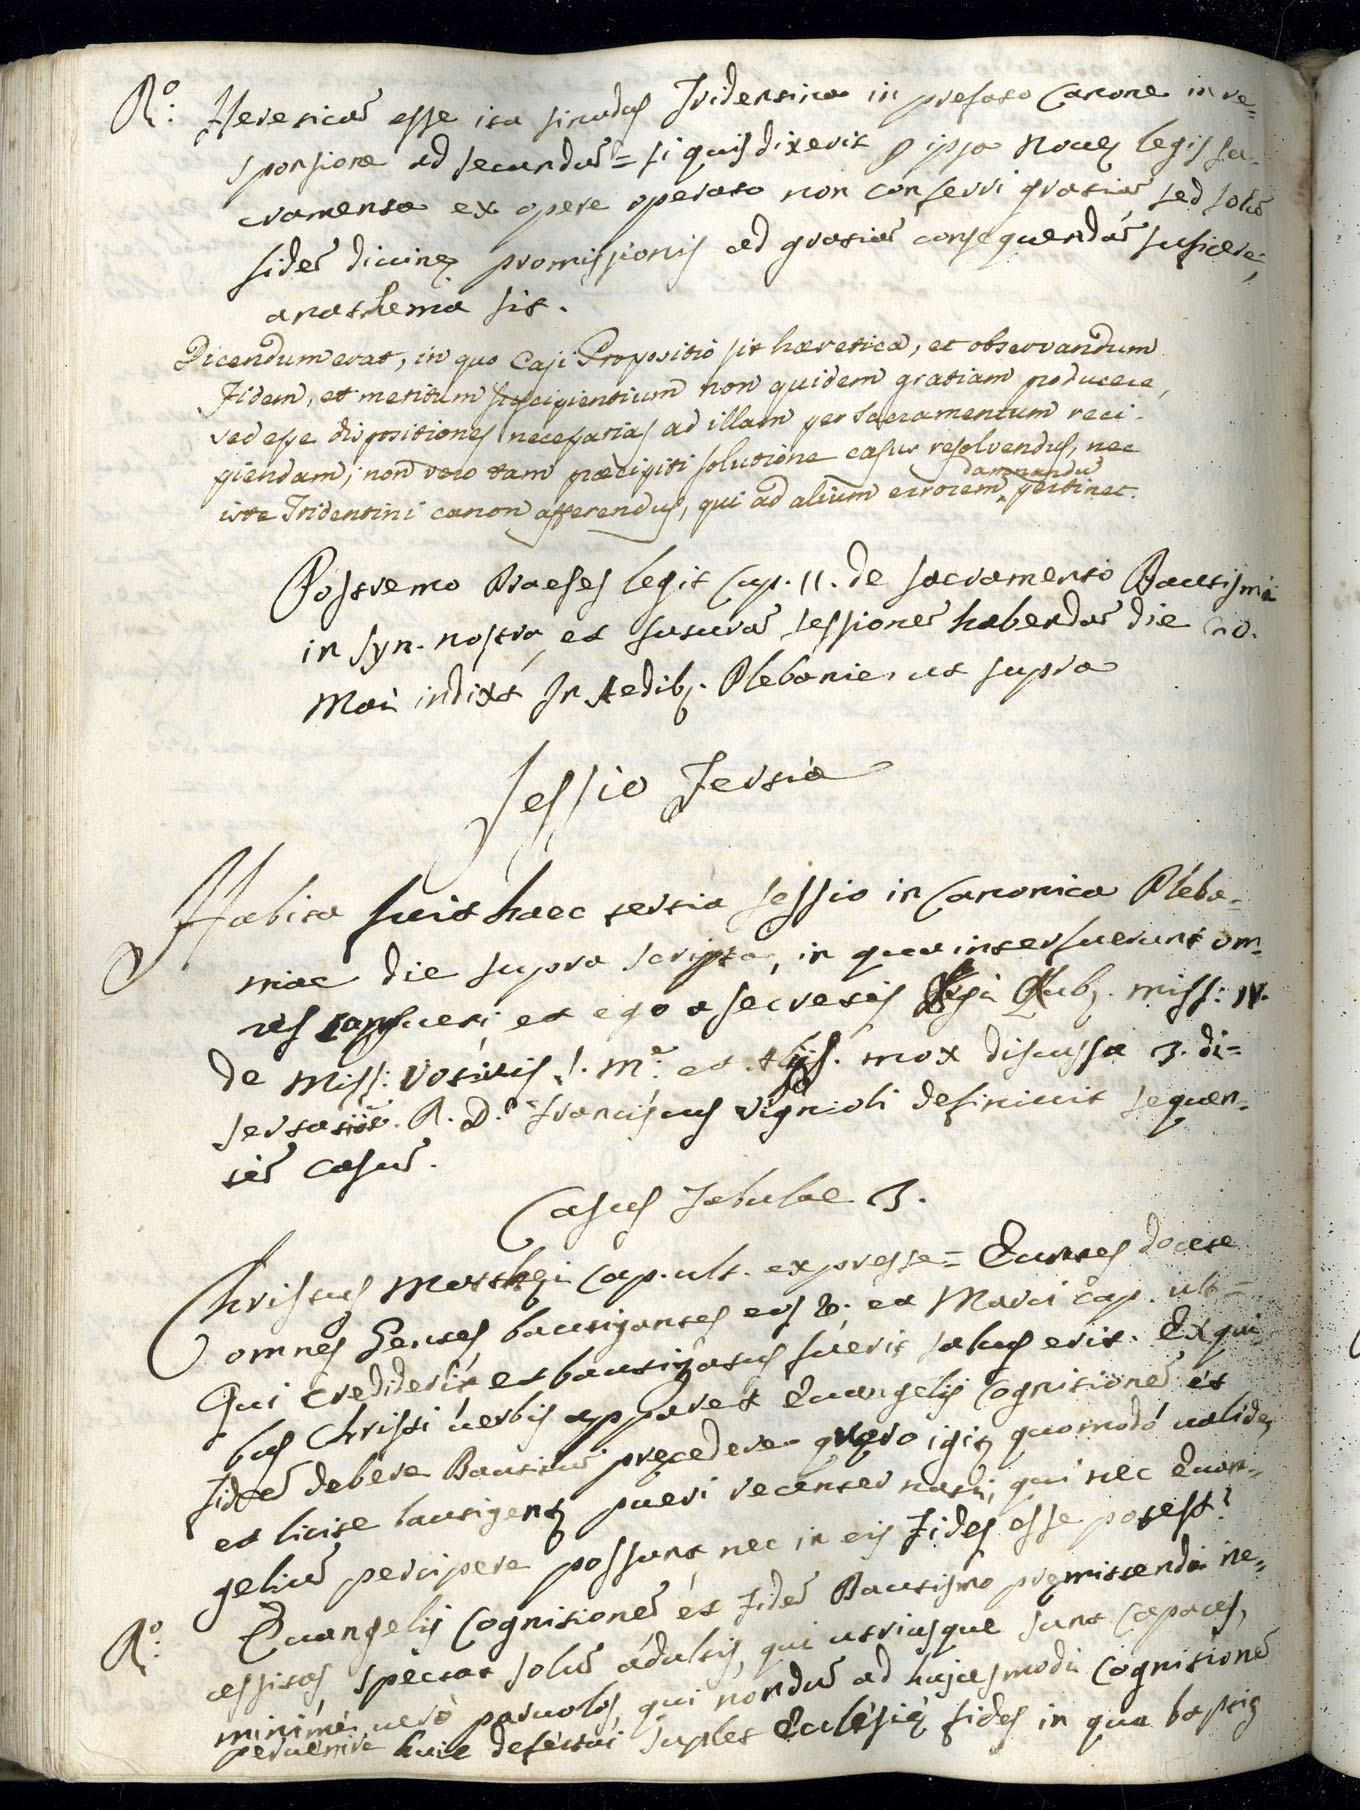 Ro: Heresicã esse ita sinodus Tridentina in prefato Canone in re=
sponsione ad secundã = si quis dixerit p ipsa novę legis sa-
cramenta ex opere operato non conferri gratiã sed solã
fidẽ divinę promissionis ad gratiã consequendã suficere,
anathema sit.
Dicendum erat, in quo Casi Propositio sit hæretica, et observandum
Fidem, et meritum suscipientium non quidem gratiam producere,
sed esse dispositiones necessarias ad illam per Sacramentum reci-
piendam; non vero tam præcipiti solutione casus resolvendus, nec
iste Tridentini canon afferendus, qui ad alium errorem damnandũ pertinet.
Postremo Praeses legit Cap. 11. de sacramento Bautismi
in syn. nostra, et futurã sessionẽ habendã die 20.
Maii indixit In Aedib; Plebanie, ut supra
Sessio Tertia
Habita fuit haec tertia sessio in Canonica Pleba-
niae die supra scripta, in qua interfuerunt om-
nes consueti et ego a secretis Rub;. miss: IV.
de Miss: Votivis S. Me: et mox discussa 3. di=
sertatiõe. R. D. Franciscus Vignioli definivit sequen-
tẽ casũ.
Casus Tabulae 3.
Christus Matthęi Cap. ult. expresse = Euntes docete
omnes Gentes, bautizantes eos &. et Marci cap. ult =
Qui crediderit et bautizatus fuerit salvus erit. Ex qui-
bus Christi verbis apparet Evangelij Cognitionẽ et
Fidẽ debere Bautismũ pręcedere quęro igit; quomodò validę
et licite bautizent; pueri recenter nati, qui nec Evan=
geliũ percipere possunt, nec in eis Fides esse potest?
Ro: Evangelij Cognitionẽ et Fidẽ Bautismo pręmittendi ne=
cessitas spectat solũ adultis, qui utriusque sunt Capaces,
minimè verò parvolos, qui nondũ ad hujusmodi Cognitionẽ
pervenire huic defectui suplet Eclesię fides in qua baptiz